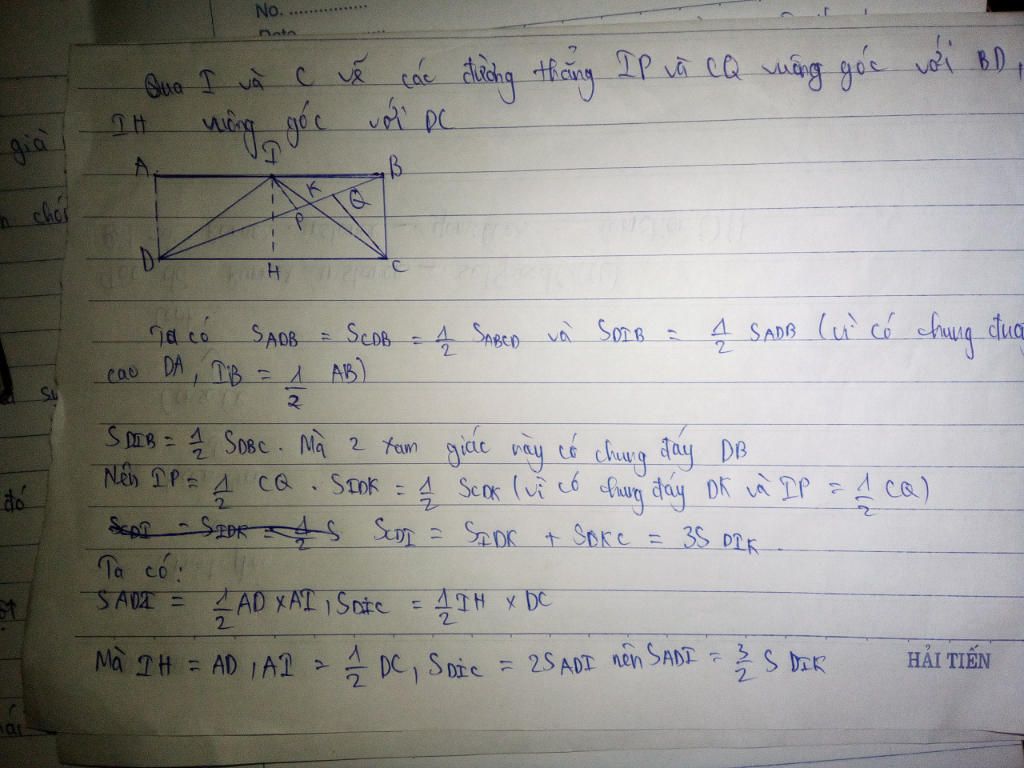 No. ...............
Qua I và C vẽ các đường thẳng IP và CQ vuông góc với BD,
già
IH vuông góc với DC
A I B
K Q
P
D H C
Ta có SADB = SCDB = 1/2 SABCD và SDIB = 1/2 SADB (vì có chung đườ
cao DA, IB = 1/2 AB)
SDIB = 1/2 SDBC. Mà 2 xam giác này có chung đáy DB
Nên IP = 1/2 CQ. SIDK = 1/2 SCDK (vì có chung đáy DK và IP = 1/2 CQ)
đó
SCDI = SIDK = 1/2 S SCDI = SIDK + SDKC = 3S DIK.
Ta có:
SADI = 1/2 AD x AI, SDIC = 1/2 IH x DC
Mà IH = AD, AI = 1/2 DC, SDIC = 2SADI nên SADI = 3/2 S DIK
HẢI TIẾN